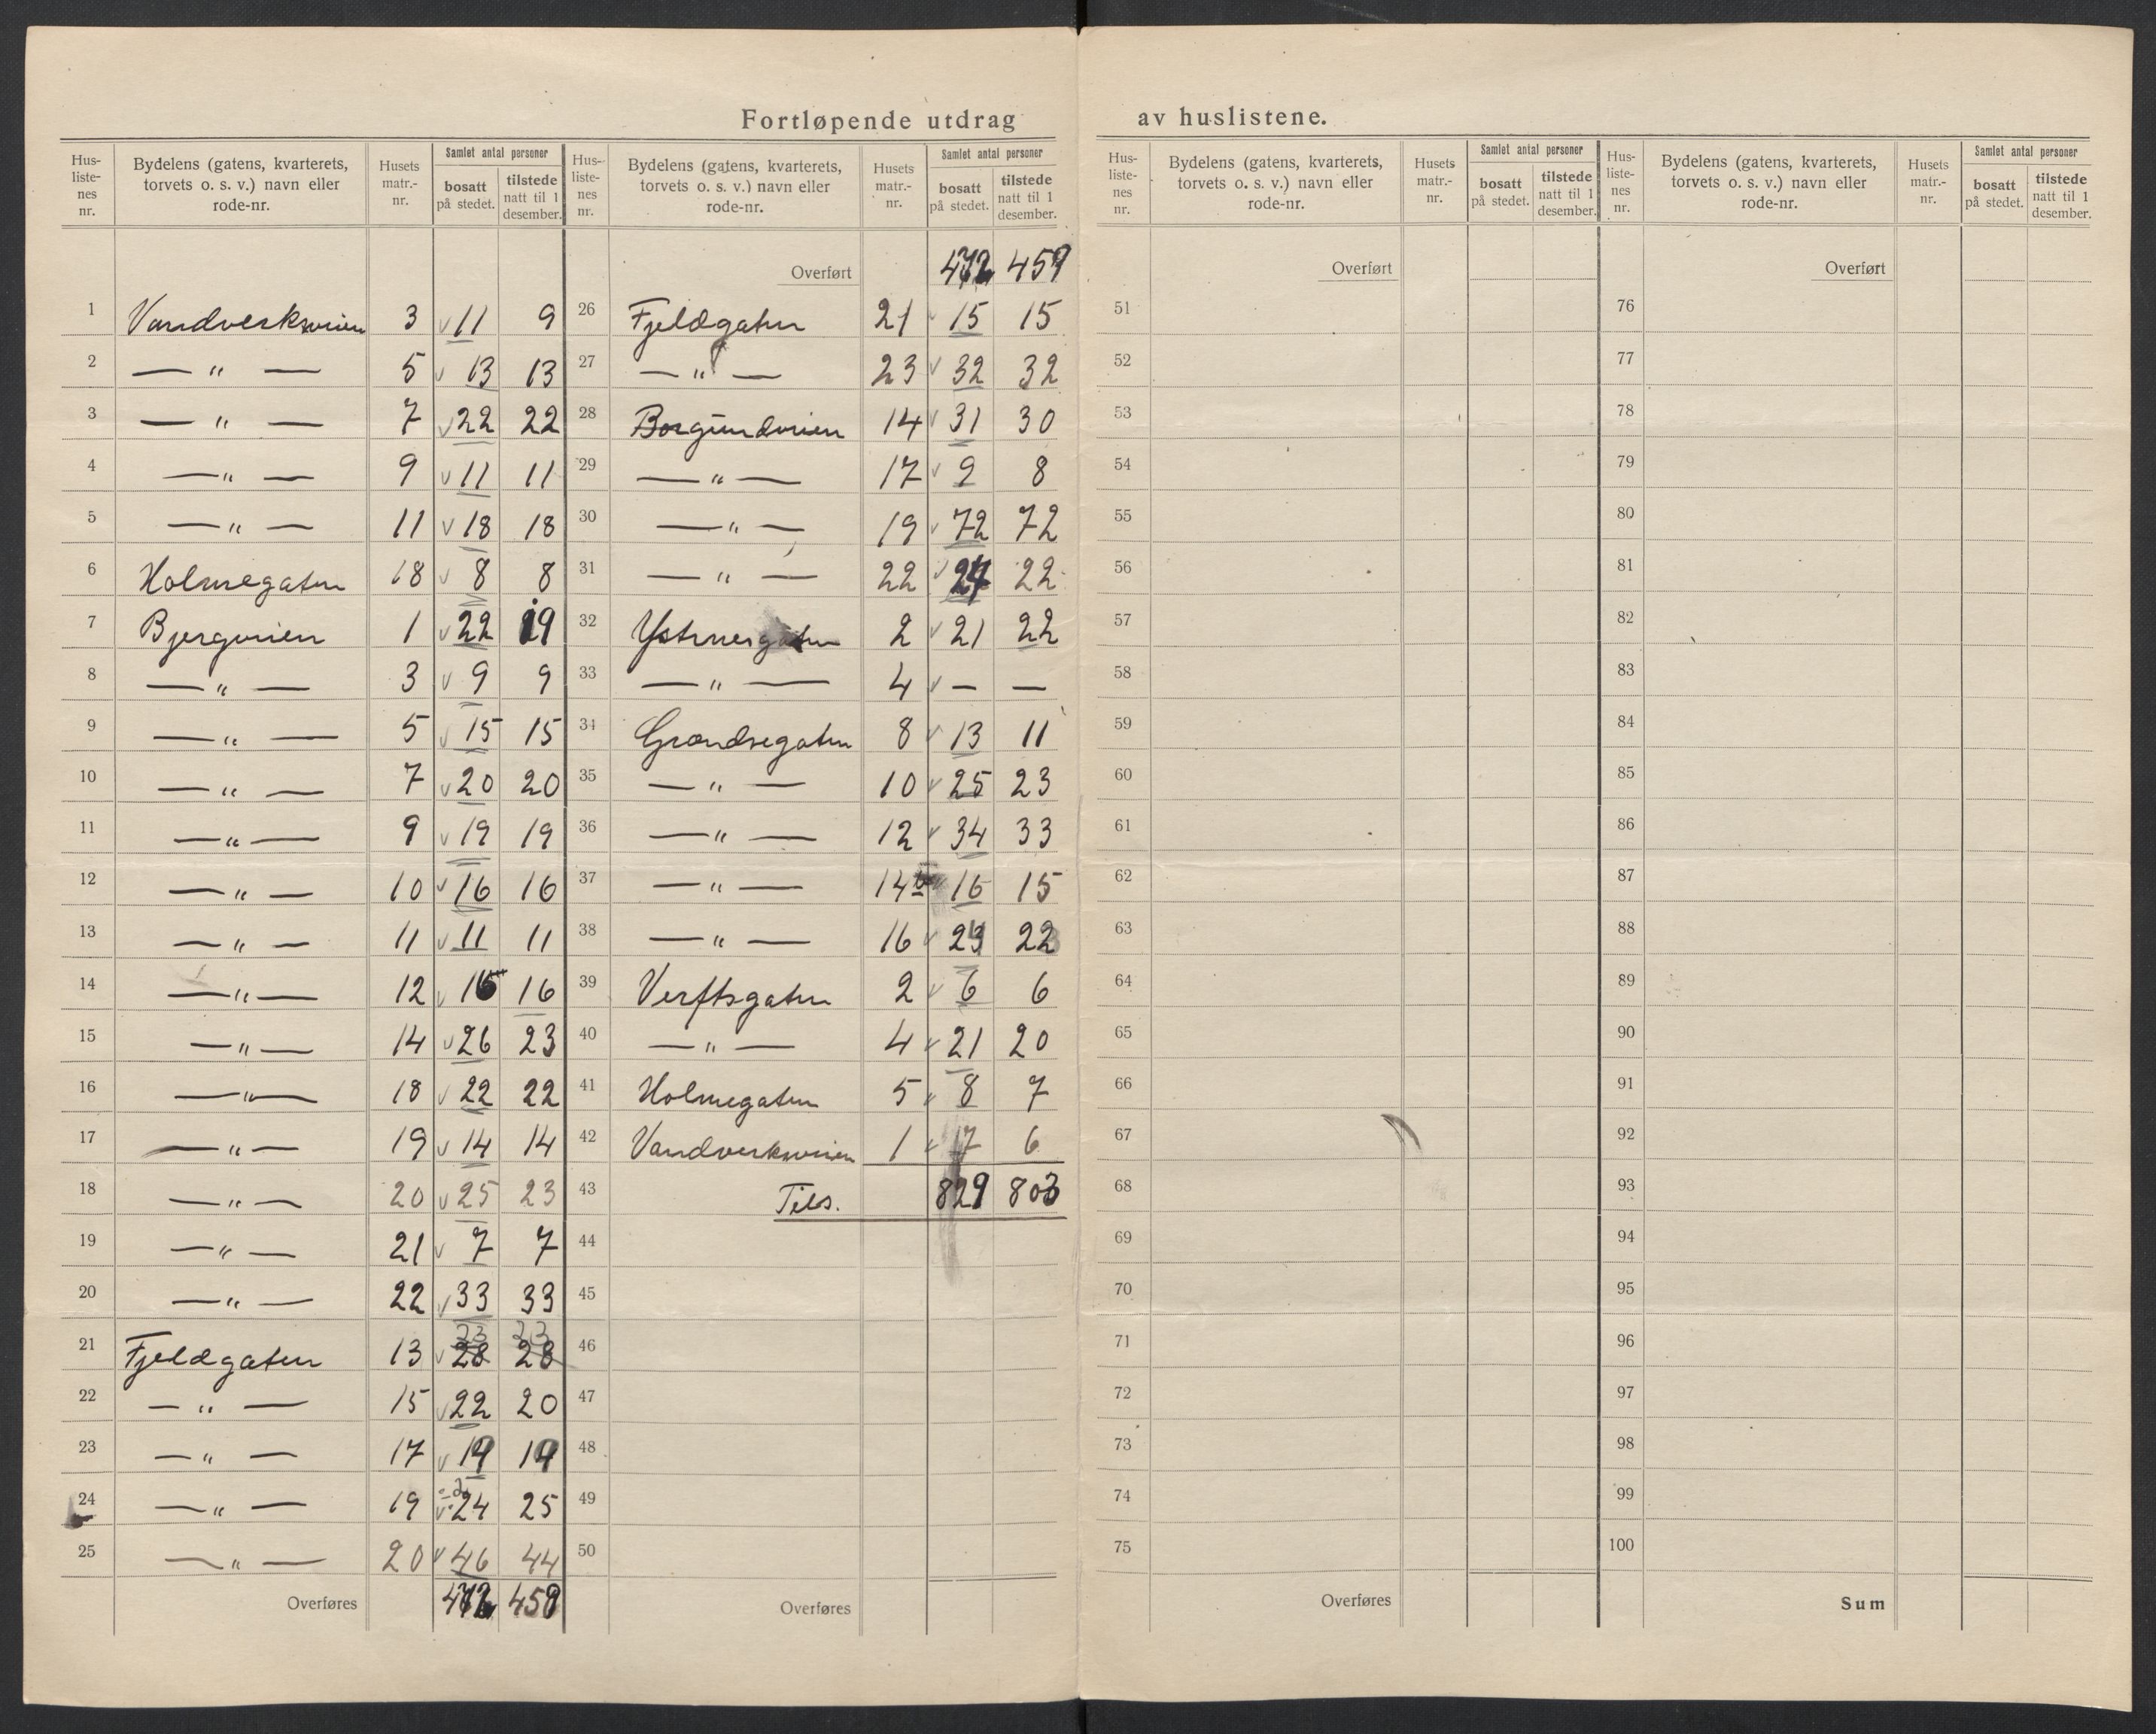 Fortløpende utdrag av huslistene.
Hus-listenes nr. | Bydelens (gatens, kvarterets, torvets o. s. v.) navn eller rode-nr. | Husets matr.-nr. | Samlet antal personer | bosatt på stedet. | tilstede natt til 1 desember.
1 Vandverksveien 3 v 11 9
2 — " — 5 v 13 13
3 — " — 7 v 22 22
4 — " — 9 v 11 11
5 — " — 11 v 18 18
6 Holmegaten 18 v 8 8
7 Bjergveien 1 v 22 19
8 — " — 3 v 9 9
9 — " — 5 v 15 15
10 — " — 7 v 20 20
11 — " — 9 v 19 19
12 — " — 10 v 16 16
13 — " — 11 v 11 11
14 — " — 12 v 16 16
15 — " — 14 v 26 23
16 — " — 18 v 22 22
17 — " — 19 v 14 14
18 — " — 20 v 25 23
19 — " — 21 v 7 7
20 — " — 22 v 33 33
21 Fjeldgaten 13 v 28 28
23 23
22 — " — 15 v 22 20
23 — " — 17 v 19 19
24 — " — 19 v 24 25
25 — " — 20 v 46 44
Overføres 472 459
Hus-listenes nr. | Bydelens (gatens, kvarterets, torvets o. s. v.) navn eller rode-nr. | Husets matr.-nr. | Samlet antal personer | bosatt på stedet. | tilstede natt til 1 desember.
Overført 472 459
26 Fjeldgaten 21 v 15 15
27 — " — 23 v 32 32
28 Borgundveien 14 v 31 30
29 — " — 17 v 9 8
30 — " — 19 v 72 72
31 — " — 22 v 24 22
32 Ystenesgaten 2 v 21 22
33 — " — 4 v — —
34 Grændsegaten 8 v 13 11
35 — " — 10 v 25 23
36 — " — 12 v 34 33
37 — " — 14b 16 15
38 — " — 16 v 23 22
39 Verftsgaten 2 v 6 6
40 — " — 4 v 21 20
41 Holmegaten 5 v 8 7
42 Vandverksveien 1 v 7 6
43 Tils. 829 803
44
45
46
47
48
49
50
Overføres
Hus-listenes nr. | Bydelens (gatens, kvarterets, torvets o. s. v.) navn eller rode-nr. | Husets matr.-nr. | Samlet antal personer | bosatt på stedet. | tilstede natt til 1 desember.
Overført
51
52
53
54
55
56
57
58
59
60
61
62
63
64
65
66
67
68
69
70
71
72
73
74
75
Overføres
Hus-listenes nr. | Bydelens (gatens, kvarterets, torvets o. s. v.) navn eller rode-nr. | Husets matr.-nr. | Samlet antal personer | bosatt på stedet. | tilstede natt til 1 desember.
Overført
76
77
78
79
80
81
82
83
84
85
86
87
88
89
90
91
92
93
94
95
96
97
98
99
100
Sum